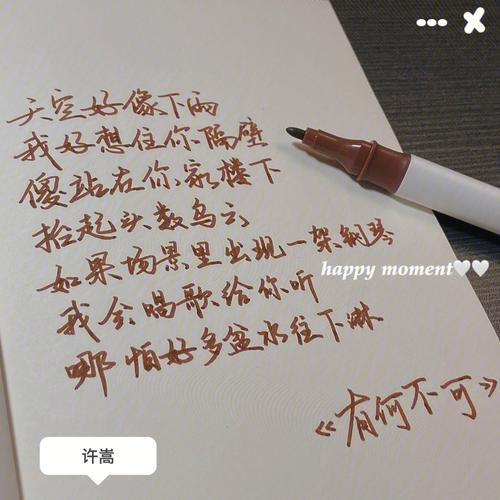 天空好像下雨
我好想住你隔壁
傻站在你家楼下
抬起头数乌云
如果场景里出现一架钢琴
我会唱歌给你听
哪怕好多盆水往下淋
happy moment
《有何不可》
许嵩